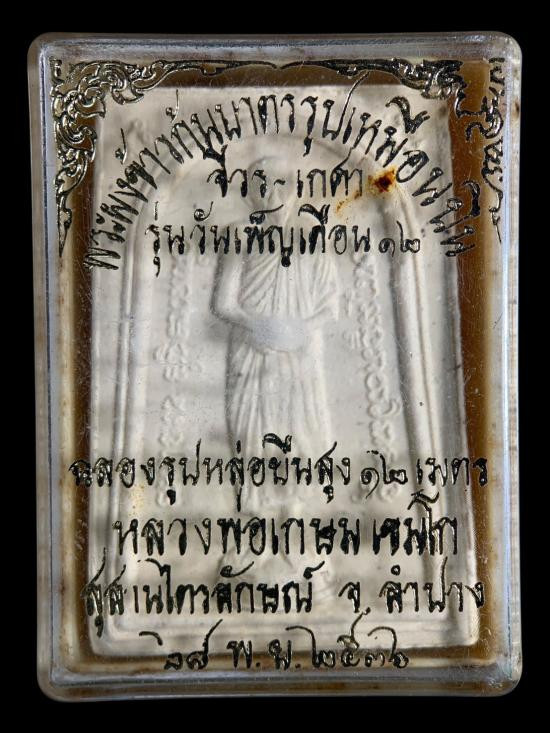 พระผงข้าวก้นบาตรรูปเหมือน
จีวร-เกศา
รุ่นวันเพ็ญเดือน ๑๒
ฉลองรูปหล่อยืนสูง ๑๒ เมตร
หลวงพ่อเกษม เขมโก
สุสานไตรลักษณ์ จ. ลำปาง
๒๘ พ.ย. ๒๕๓๖